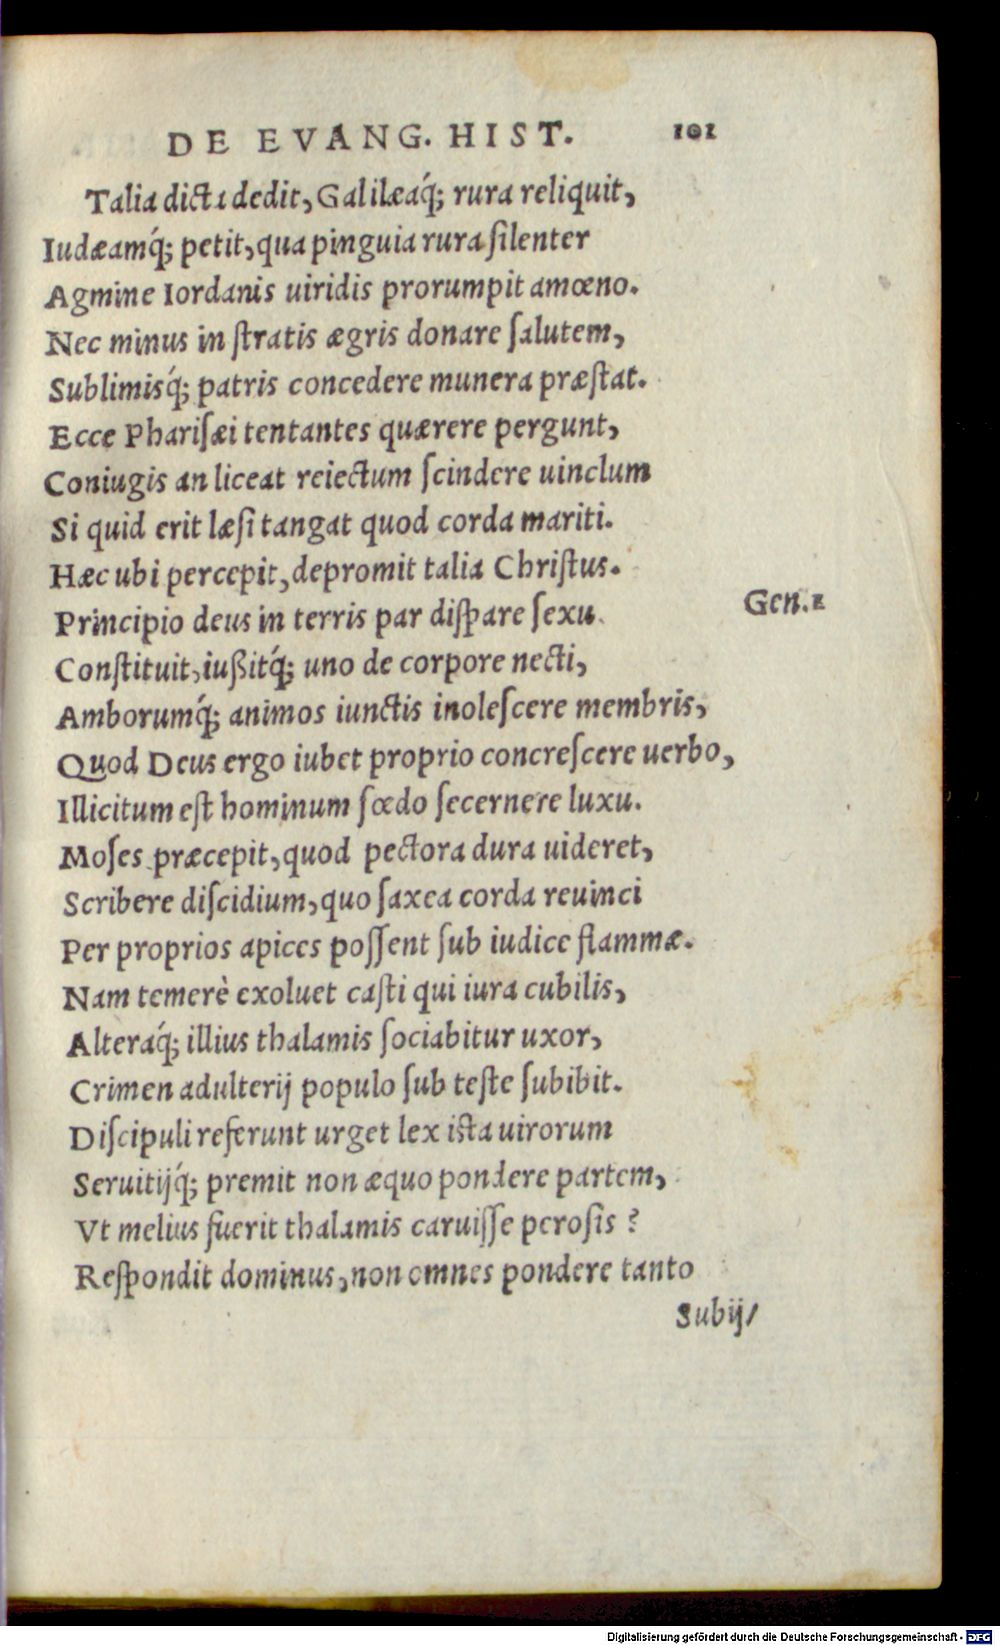 DE EVANG. HIST. 101
Talia dicta dedit, Galilæaq́; rura reliquit,
Iudæamq́; petit, qua pinguia rura silenter
Agmine Iordanis uiridis prorumpit amœno.
Nec minus in stratis ægris donare salutem,
Sublimisq́; patris concedere munera præstat.
Ecce Pharisæi tentantes quærere pergunt,
Coniugis an liceat reiectum scindere uinclum
Si quid erit læsi tangat quod corda mariti.
Hæc ubi percepit, depromit talia Christus.
Principio deus in terris par dispare sexu
Gen. 2
Constituit, iußitq́; uno de corpore necti,
Amborumq́; animos iunctis inolescere membris,
Quod Deus ergo iubet proprio concrescere uerbo,
Illicitum est hominum fœdo secernere luxu.
Moses præcepit, quod pectora dura uideret,
Scribere discidium, quo saxea corda reuinci
Per proprios apices possent sub iudice flammæ.
Nam temerè exoluet casti qui iura cubilis,
Alteraq́; illius thalamis sociabitur uxor,
Crimen adulterij populo sub teste subibit.
Discipuli referunt urget lex ista uirorum
Seruitijq́; premit non æquo pondere partem,
Vt melius fuerit thalamis caruisse perosis?
Respondit dominus, non omnes pondere tanto
Subij/
Digitalisierung gefördert durch die Deutsche Forschungsgemeinschaft - DFG